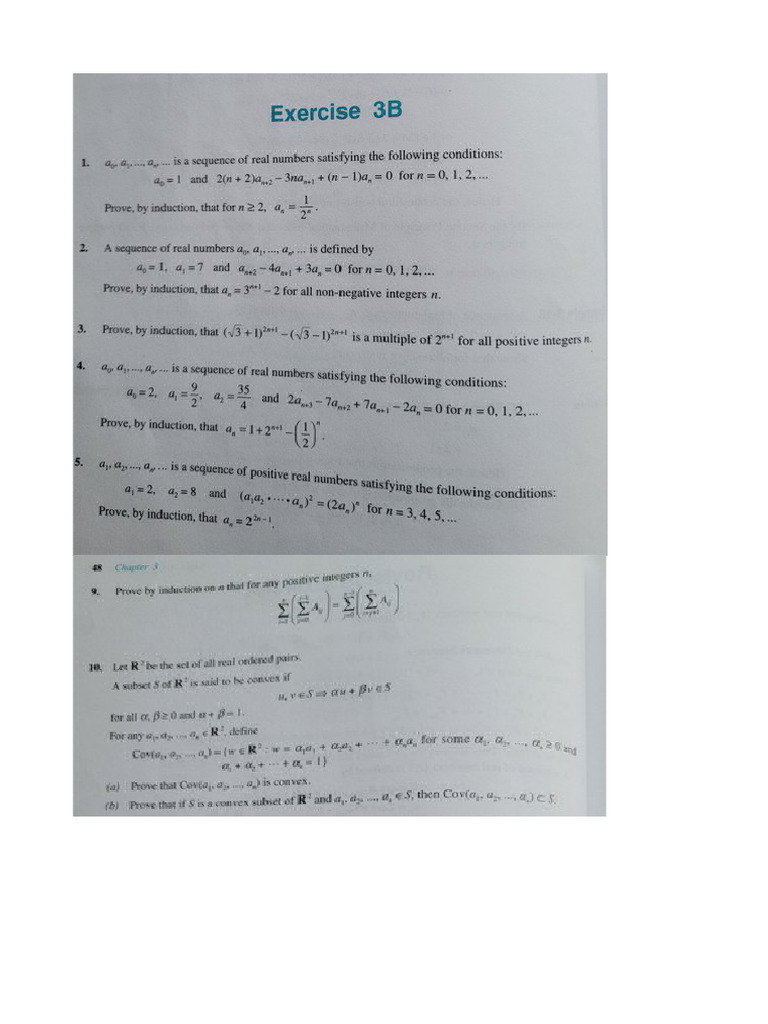 Exercise 3B
1. a₀, a₁, ..., aₙ, ... is a sequence of real numbers satisfying the following conditions:
a₀ = 1 and 2(n + 2)aₙ₊₂ – 3naₙ₊₁ + (n – 1)aₙ = 0 for n = 0, 1, 2, ...
Prove, by induction, that for n ≥ 2, aₙ = 1/2ⁿ.
2. A sequence of real numbers a₀, a₁, ..., aₙ, ... is defined by
a₀ = 1, a₁ = 7 and aₙ₊₂ – 4aₙ₊₁ + 3aₙ = 0 for n = 0, 1, 2, ...
Prove, by induction, that aₙ = 3ⁿ⁺¹ – 2 for all non-negative integers n.
3. Prove, by induction, that (√3 + 1)²ⁿ⁺¹ – (√3 – 1)²ⁿ⁺¹ is a multiple of 2ⁿ⁺¹ for all positive integers n.
4. a₀, a₁, ..., aₙ, ... is a sequence of real numbers satisfying the following conditions:
a₀ = 2, a₁ = 9/2, a₂ = 35/4 and 2aₙ₊₃ – 7aₙ₊₂ + 7aₙ₊₁ – 2aₙ = 0 for n = 0, 1, 2, ...
Prove, by induction, that aₙ = 1 + 2ⁿ⁺¹ – (1/2)ⁿ.
5. a₁, a₂, ..., aₙ, ... is a sequence of positive real numbers satisfying the following conditions:
a₁ = 2, a₂ = 8 and (a₁a₂ • ··· • aₙ)² = (2aₙ)ⁿ for n = 3, 4, 5, ...
Prove, by induction, that aₙ = 2²ⁿ⁻¹.
48 Chapter 3
9. Prove by induction on n that for any positive integers n,
10. Let R² be the set of all real ordered pairs.
A subset S of R² is said to be convex if
u, v ∈ S ⇒ αu + βv ∈ S
for all α, β ≥ 0 and α + β = 1.
For any a₁, a₂, ..., aₙ ∈ R², define
Cov(a₁, a₂, ..., aₙ) = {w ∈ R² : w = α₁a₁ + α₂a₂ + ··· + αₙaₙ for some α₁, α₂, ..., αₙ ≥ 0 and
α₁ + α₂ + ··· + αₙ = 1}
(a) Prove that Cov(a₁, a₂, ..., aₙ) is convex.
(b) Prove that if S is a convex subset of R² and a₁, a₂, ..., aₙ ∈ S, then Cov(a₁, a₂, ..., aₙ) ⊂ S.